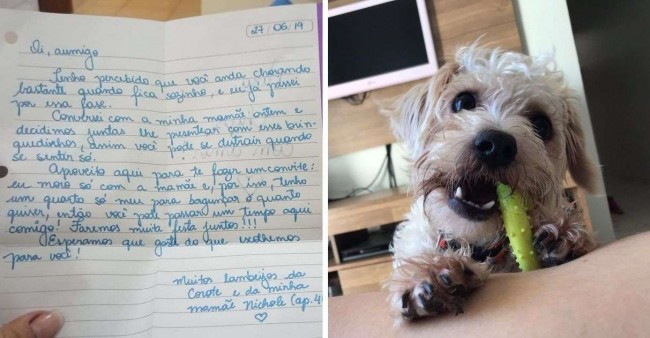 27/06/19
Oi, aumigo
Tenho percebido que você anda chorando
bastante quando fica sozinho, e eu já passei
por essa fase.
Conversei com a minha mamãe ontem e
decidimos juntas lhe presentear com esses brin-
quedinhos, assim você pode se distrair quando
se sentir só.
Aproveito aqui para te fazer um convite:
eu moro só com a mamãe e, por isso, tenho
um quarto só meu para bagunçar o quanto
quiser, então você pode passar um tempo aqui
comigo! Faremos muita festa juntos!!!
Esperamos que goste do que escolhemos
para você!
Muitos lambeijos da
Corote e da minha
mamãe Nichole (ap. 4